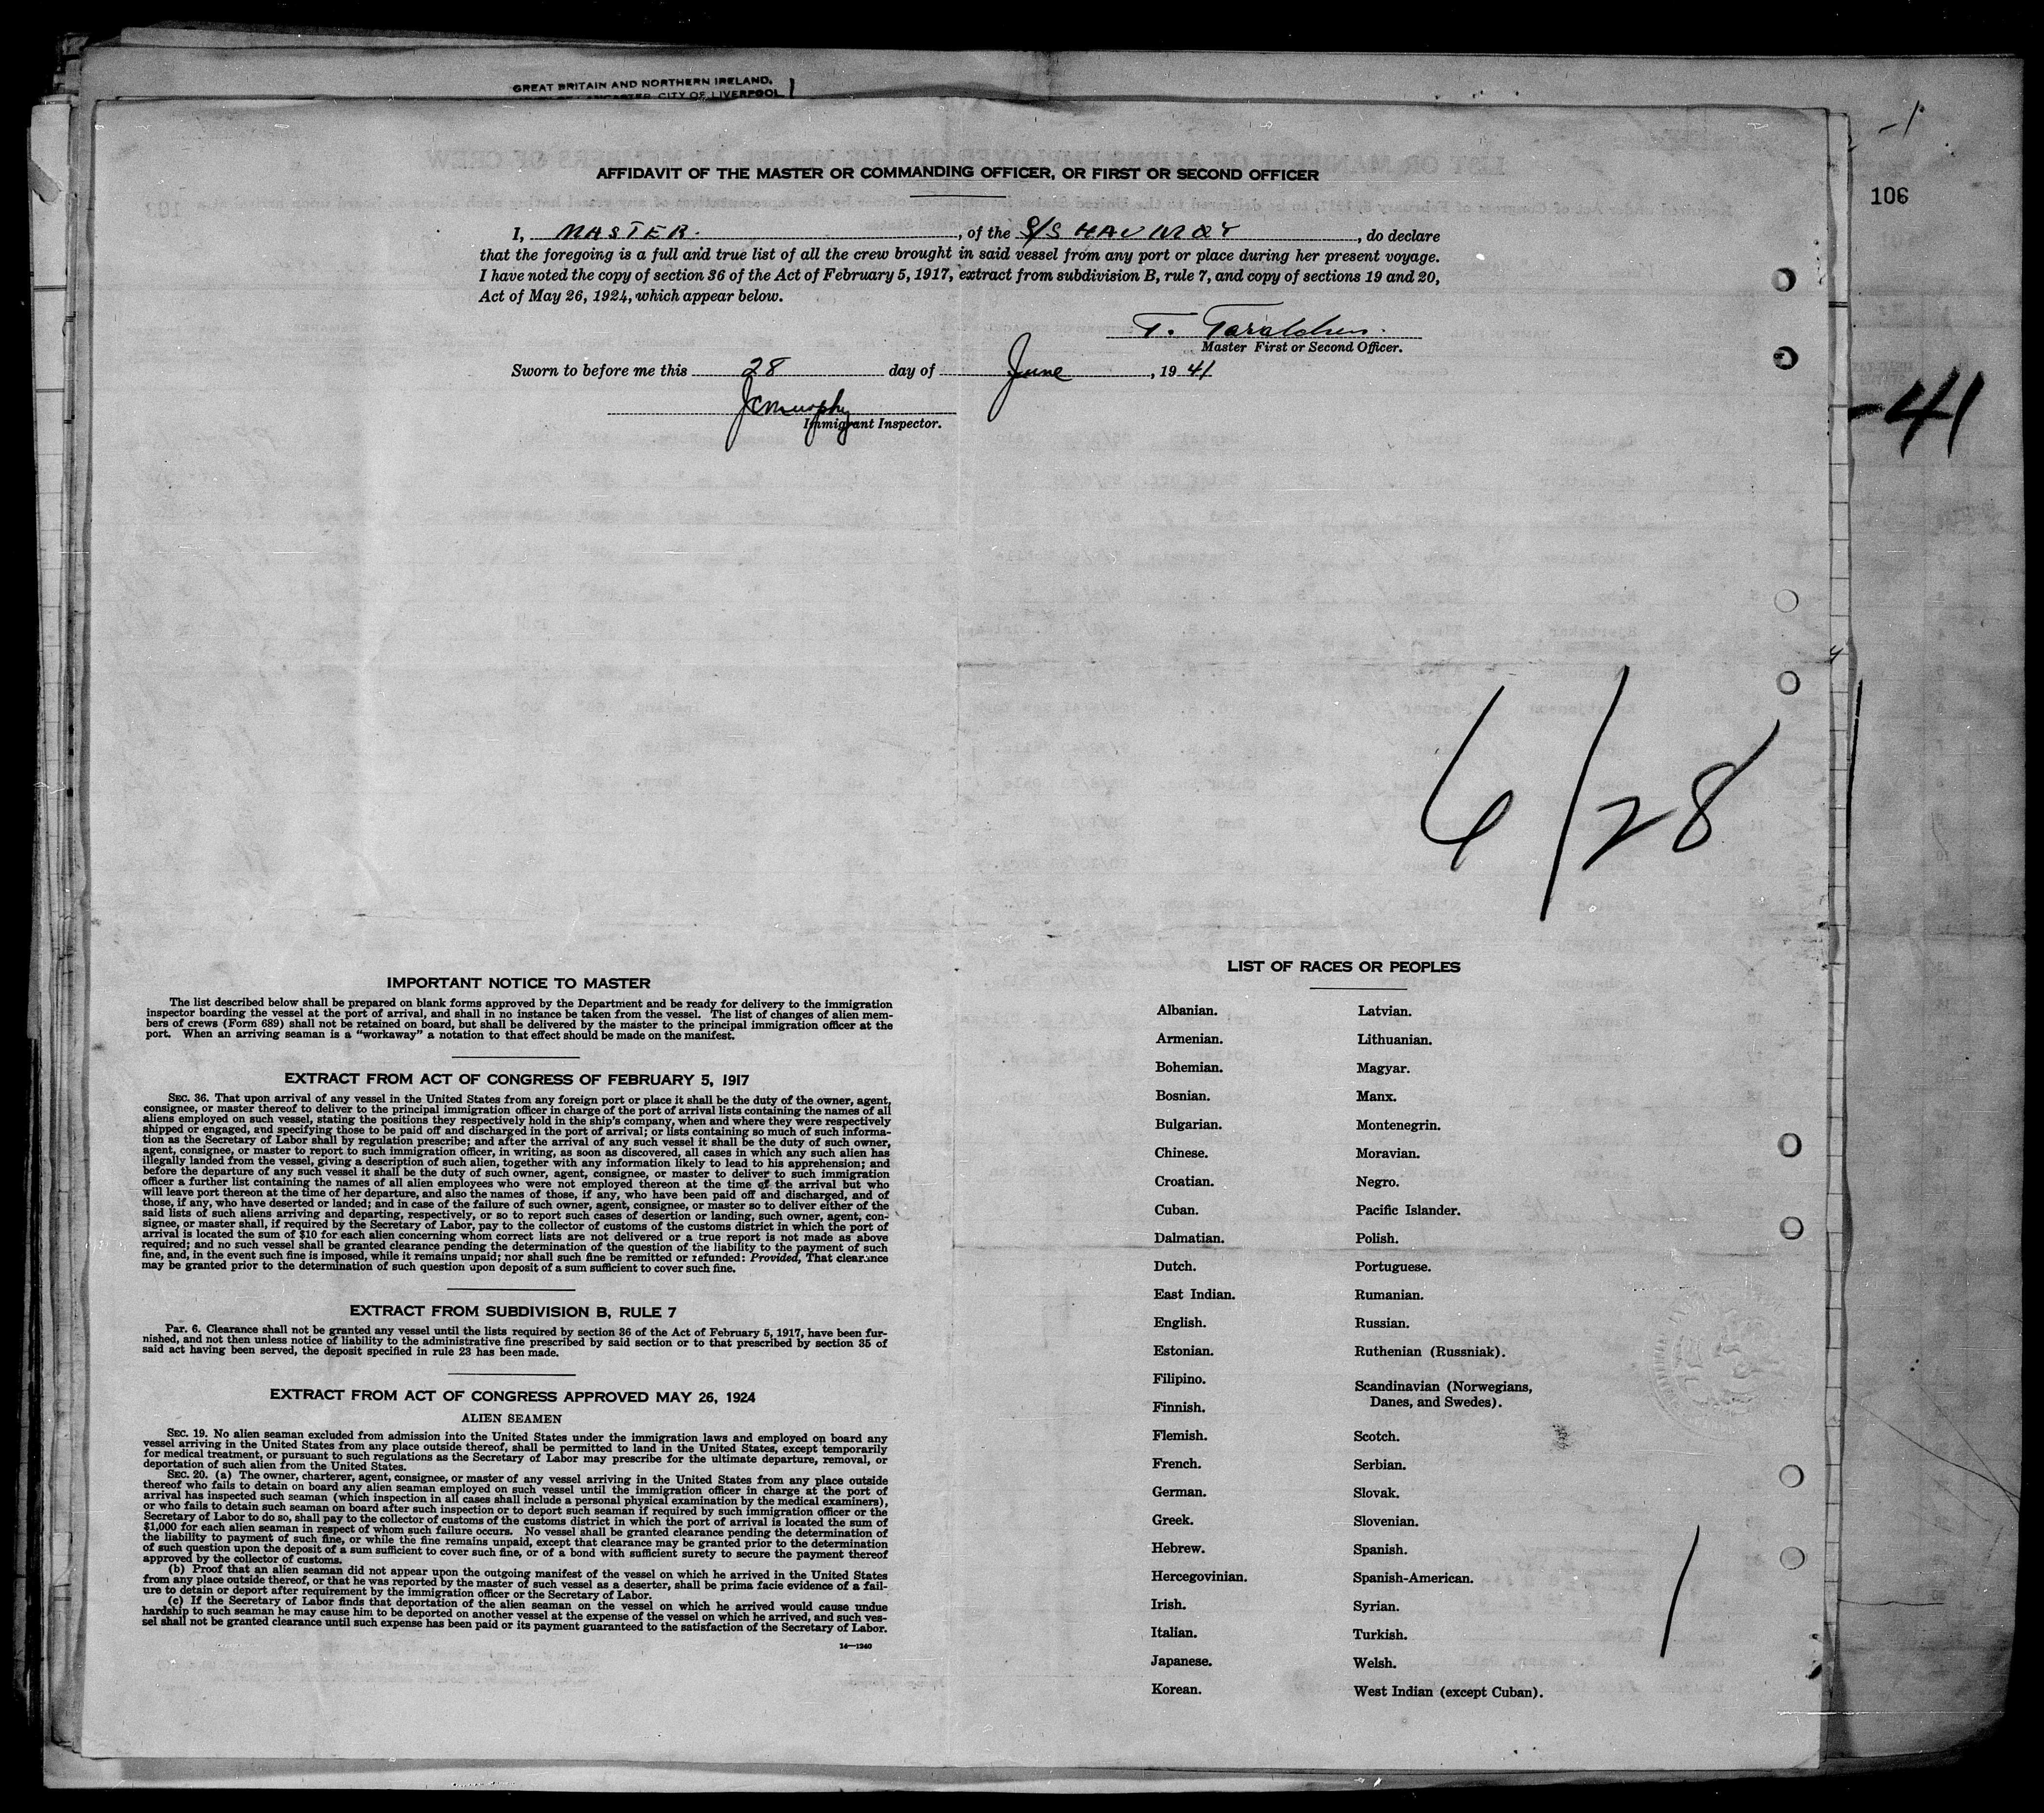 GREAT BRITAIN AND NORTHERN IRELAND,
LANCASTER, CITY OF LIVERPOOL
106
AFFIDAVIT OF THE MASTER OR COMMANDING OFFICER, OR FIRST OR SECOND OFFICER
I, MASTER. , of the S/S HAVMØY , do declare
that the foregoing is a full and true list of all the crew brought in said vessel from any port or place during her present voyage.
I have noted the copy of section 36 of the Act of February 5, 1917, extract from subdivision B, rule 7, and copy of sections 19 and 20,
Act of May 26, 1924, which appear below.
T. Taraldsen.
Master First or Second Officer.
Sworn to before me this 28 day of June , 19 41
JCMurphy
Immigrant Inspector.
-41
6/28
IMPORTANT NOTICE TO MASTER
The list described below shall be prepared on blank forms approved by the Department and be ready for delivery to the immigration
inspector boarding the vessel at the port of arrival, and shall in no instance be taken from the vessel. The list of changes of alien mem-
bers of crews (Form 689) shall not be retained on board, but shall be delivered by the master to the principal immigration officer at the
port. When an arriving seaman is a "workaway" a notation to that effect should be made on the manifest.
EXTRACT FROM ACT OF CONGRESS OF FEBRUARY 5, 1917
SEC. 36. That upon arrival of any vessel in the United States from any foreign port or place it shall be the duty of the owner, agent,
consignee, or master thereof to deliver to the principal immigration officer in charge of the port of arrival lists containing the names of all
aliens employed on such vessel, stating the positions they respectively hold in the ship's company, when and where they were respectively
shipped or engaged, and specifying those to be paid off and discharged in the port of arrival; or lists containing so much of such informa-
tion as the Secretary of Labor shall by regulation prescribe; and after the arrival of any such vessel it shall be the duty of such owner,
agent, consignee, or master to report to such immigration officer, in writing, as soon as discovered, all cases in which any such alien has
illegally landed from the vessel, giving a description of such alien, together with any information likely to lead to his apprehension; and
before the departure of any such vessel it shall be the duty of such owner, agent, consignee, or master to deliver to such immigration
officer a further list containing the names of all alien employees who were not employed thereon at the time of the arrival but who
will leave port thereon at the time of her departure, and also the names of those, if any, who have been paid off and discharged, and of
those, if any, who have deserted or landed; and in case of the failure of such owner, agent, consignee, or master so to deliver either of the
said lists of such aliens arriving and departing, respectively, or so to report such cases of desertion or landing, such owner, agent, con-
signee, or master shall, if required by the Secretary of Labor, pay to the collector of customs of the customs district in which the port of
arrival is located the sum of $10 for each alien concerning whom correct lists are not delivered or a true report is not made as above
required; and no such vessel shall be granted clearance pending the determination of the question of the liability to the payment of such
fine, and, in the event such fine is imposed, while it remains unpaid; nor shall such fine be remitted or refunded: Provided, That clearance
may be granted prior to the determination of such question upon deposit of a sum sufficient to cover such fine.
EXTRACT FROM SUBDIVISION B, RULE 7
PAR. 6. Clearance shall not be granted any vessel until the lists required by section 36 of the Act of February 5, 1917, have been fur-
nished, and not then unless notice of liability to the administrative fine prescribed by said section or to that prescribed by section 35 of
said act having been served, the deposit specified in rule 23 has been made.
EXTRACT FROM ACT OF CONGRESS APPROVED MAY 26, 1924
ALIEN SEAMEN
SEC. 19. No alien seaman excluded from admission into the United States under the immigration laws and employed on board any
vessel arriving in the United States from any place outside thereof, shall be permitted to land in the United States, except temporarily
for medical treatment, or pursuant to such regulations as the Secretary of Labor may prescribe for the ultimate departure, removal, or
deportation of such alien from the United States.
SEC. 20. (a) The owner, charterer, agent, consignee, or master of any vessel arriving in the United States from any place outside
thereof who fails to detain on board any alien seaman employed on such vessel until the immigration officer in charge at the port of
arrival has inspected such seaman (which inspection in all cases shall include a personal physical examination by the medical examiners),
or who fails to detain such seaman on board after such inspection or to deport such seaman if required by such immigration officer or the
Secretary of Labor to do so, shall pay to the collector of customs of the customs district in which the port of arrival is located the sum of
$1,000 for each alien seaman in respect of whom such failure occurs. No vessel shall be granted clearance pending the determination of
the liability to payment of such fine, or while the fine remains unpaid, except that clearance may be granted prior to the determination
of such question upon the deposit of a sum sufficient to cover such fine, or of a bond with sufficient surety to secure the payment thereof
approved by the collector of customs.
(b) Proof that an alien seaman did not appear upon the outgoing manifest of the vessel on which he arrived in the United States
from any place outside thereof, or that he was reported by the master of such vessel as a deserter, shall be prima facie evidence of a fail-
ure to detain or deport after requirement by the immigration officer or the Secretary of Labor.
(c) If the Secretary of Labor finds that deportation of the alien seaman on the vessel on which he arrived would cause undue
hardship to such seaman he may cause him to be deported on another vessel at the expense of the vessel on which he arrived, and such ves-
sel shall not be granted clearance until such expense has been paid or its payment guaranteed to the satisfaction of the Secretary of Labor.
14—1240
LIST OF RACES OR PEOPLES
Albanian.
Armenian.
Bohemian.
Bosnian.
Bulgarian.
Chinese.
Croatian.
Cuban.
Dalmatian.
Dutch.
East Indian.
English.
Estonian.
Filipino.
Finnish.
Flemish.
French.
German.
Greek.
Hebrew.
Hercegovinian.
Irish.
Italian.
Japanese.
Korean.
Latvian.
Lithuanian.
Magyar.
Manx.
Montenegrin.
Moravian.
Negro.
Pacific Islander.
Polish.
Portuguese.
Rumanian.
Russian.
Ruthenian (Russniak).
Scandinavian (Norwegians,
Danes, and Swedes).
Scotch.
Serbian.
Slovak.
Slovenian.
Spanish.
Spanish-American.
Syrian.
Turkish.
Welsh.
West Indian (except Cuban).